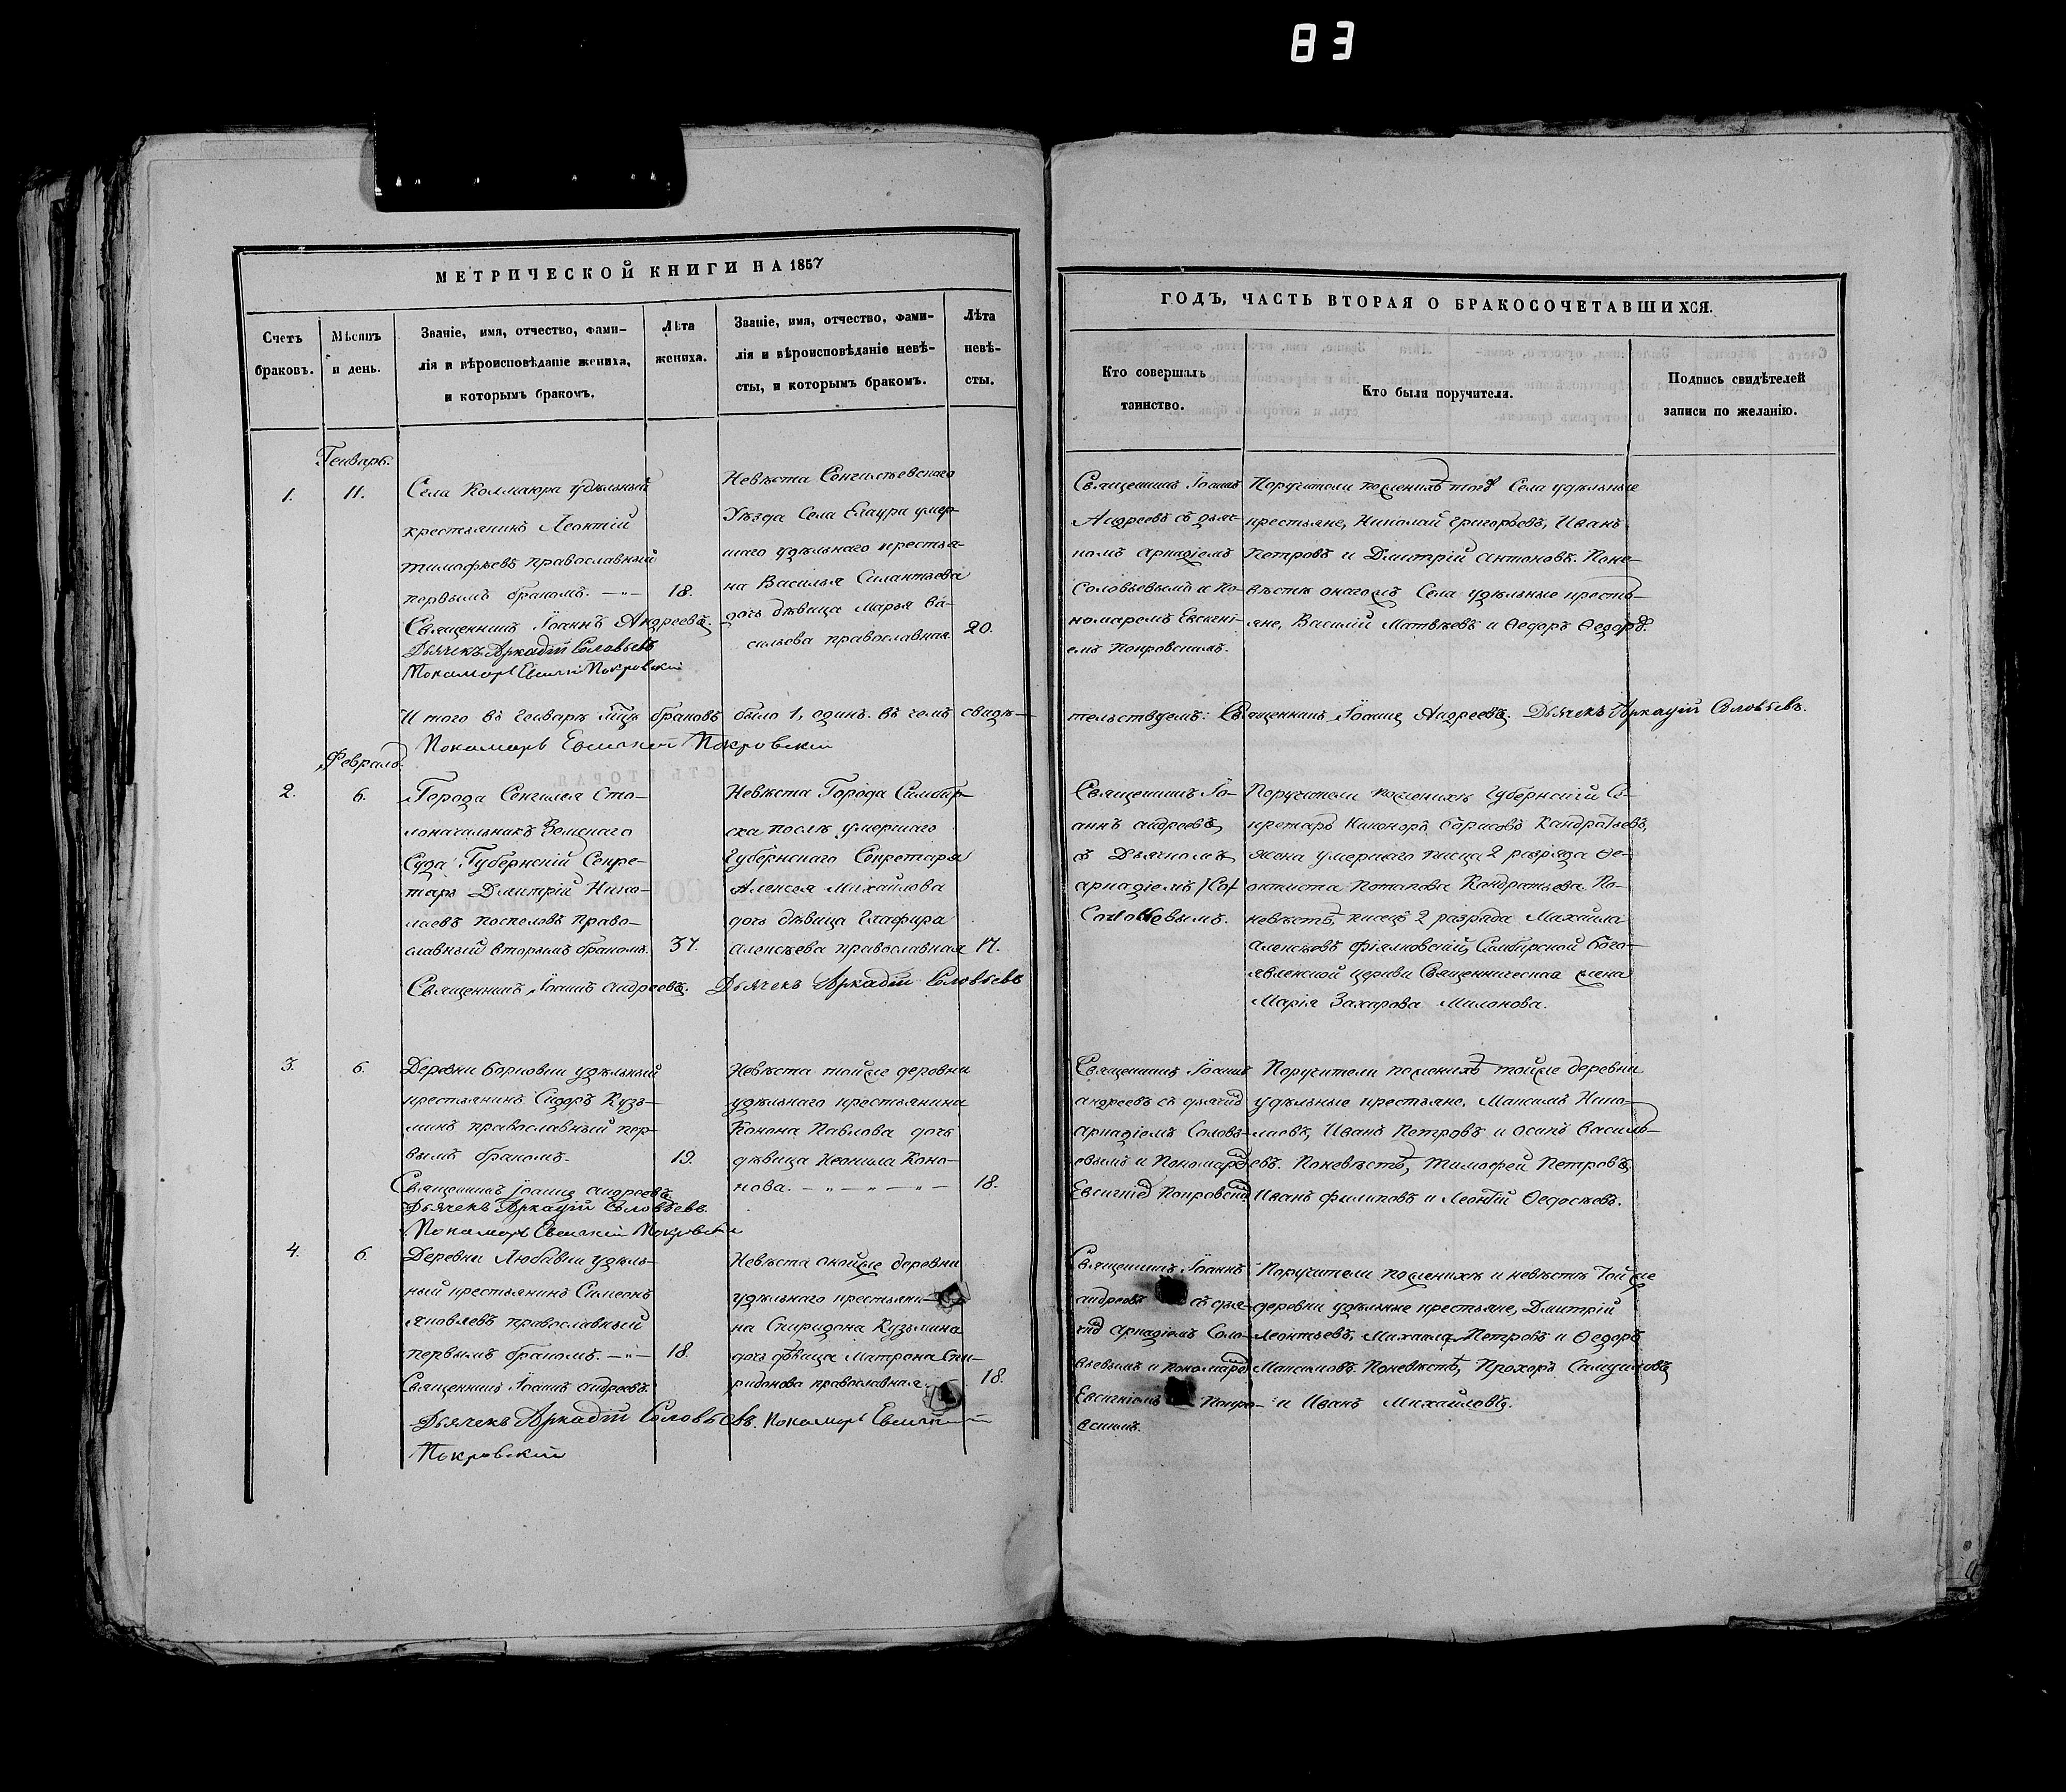 83
МЕТРИЧЕСКОЙ КНИГИ НА 1857
Счетъ браковъ.
Мѣсяцъ и день.
Званіе, имя, отчество, фами-
лія и вѣроисповѣданіе жениха,
и которымъ бракомъ.
Лѣта
жениха.
Званіе, имя, отчество, фами-
лія и вѣроисповѣданіе невѣ-
сты, и которымъ бракомъ.
Лѣта
невѣ-
сты.
ГОДЪ, ЧАСТЬ ВТОРАЯ О БРАКОСОЧЕТАВШИХСЯ.
Кто совершалъ
таинство.
Кто были поручители.
Подпись свидѣтелей
записи по желанію.
Генварь.
1.
11.
СелаКолмаюра удѣльный
крестьянинъ Леонтій
тимофѣевъ православный
первымъ бракомъ.
18.
Священникъ Іоаннъ Андреевъ.
Дьячекъ Аркадій Соловьевъ
Пономарь Евсигній Покровскій
Невѣста Сенгилѣевскаго
Уѣзда Села Елаура умер-
шаго удѣльнаго крестья-
на Василья Силантьева
дочь дѣвица марья ва-
сильева православная.
20.
Священникъ Іоаннъ
Андреевъ съ дьяч-
комъ аркадіемъ
Соловьевымъ и по-
номаремъ Евсигні-
емъ Покровскимъ.
Поручители поженихѣ тогоже Села удѣльные
крестьяне, Николай григорьевъ, Иванъ
Петровъ и Дмитрій антоновъ. Поне-
вѣстѣ онагожъ Села удѣльные кресть-
яне, Василій Матвѣевъ и Ѳедоръ Ѳедоровъ.
И того въ генварѣ мцѣ браковъ было 1, одинъ. въ чемъ свидѣ-
тельствуемъ: Священникъ Іоаннъ Андреевъ. Дьячекъ Аркадій Соловьевъ.
Пономарь Евсигній Покровскій
Февраль.
2.
6.
Города Сенгилея Сто-
лоначальникъ Земскаго
Суда Губернскій Секре-
тарь Дмитрій Нико-
лаевъ поспеловъ право-
славный вторымъ бракомъ.
37.
Невѣста Города Симбир-
ска послѣ умершаго
Губернскаго Секретаря
Алексея Михайлова
дочь дѣвица глафира
алексѣева православная
17.
Священникъ Іоаннъ андреевъ. Дьячекъ Аркадій Соловьевъ
Священникъ Іо-
аннъ андреевъ
съ Дьячкомъ
аркадіемъ
Соловьевымъ.
Поручители поженихѣ Губернскій Се-
кретарь Никоноръ борисовъ Кандратьевъ,
жена умершаго писца 2 разряда Ѳе-
октиста Потапова Кандратьева. По-
невѣстѣ, писецъ 2 разряда Михайла
алексѣевъ фіалковскій, Симбирской бого-
явленской церкви Священническая жена
Марія Захарова Милонова.
3.
6.
Деревни борковки удѣльный
крестьянинъ Сидоръ Кузь-
минъ православный пер-
вымъ бракомъ.
19.
Священникъ Іоаннъ андреевъ
Дьячекъ Аркадій Соловьевъ.
Пономарь Евсигній Покровскій
Невѣста тойже деревни
удѣльнаго крестьянина
Конона Павлова дочь
дѣвица Неонила Коно-
нова.
18.
Священникъ Іоаннъ
андреевъ съ дьячкомъ
аркадіемъ Соловь-
евымъ и Пономаремъ
Евсигніемъ Покровскимъ
Поручители поженихѣ тойже деревни
удѣльные крестьяне, Максимъ Нико-
лаевъ, Иванъ Петровъ и Осипъ василь-
евъ. Поневѣстѣ, тимофей Петровъ,
Иванъ филиповъ и Леонтій Ѳедосѣевъ.
4.
6.
Деревни Любавки удѣль-
ный крестьянинъ Симеонъ
яковлевъ православный
первымъ бракомъ.
18.
Священникъ Іоаннъ андреевъ.
Дьячекъ Аркадій Соловьевъ. Пономарь Евсигній
Покровскій
Невѣста онойже деревни
удѣльнаго крестьяни-
на Спиридона Кузьмина
дочь дѣвица Матрона Спи-
ридонова православная.
18.
Священникъ Іоаннъ
андреевъ съ дья-
чкомъ аркадіемъ Соло-
вьевымъ и пономаремъ
Евсигніемъ Покро-
вскимъ.
Поручители поженихѣ и невѣстѣ тойже
деревни удѣльные крестьяне, Дмитрій
Леонтьевъ, Михаила Петровъ и Ѳедоръ
Максимовъ. Поневѣстѣ, Прохоръ Самуиловъ
и Иванъ Михайловъ.